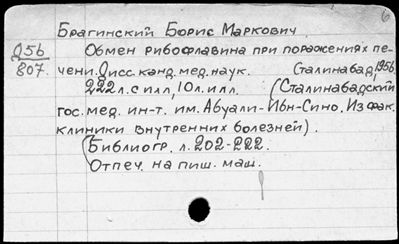 6
Брагинский Борис Маркович
Д56 Обмен рибофлавина при поражениях пе-
807. чени. Дисс. канд. мед. наук. Сталинабад, 1956.
222 л. с илл, 10 л. илл. (Сталинабадский
гос. мед. ин-т. им. Абуали-Ибн-Сино. Из фак.
клиники внутренних болезней).
(Библиогр. л. 202-222.
Отпеч. на пиш. маш.